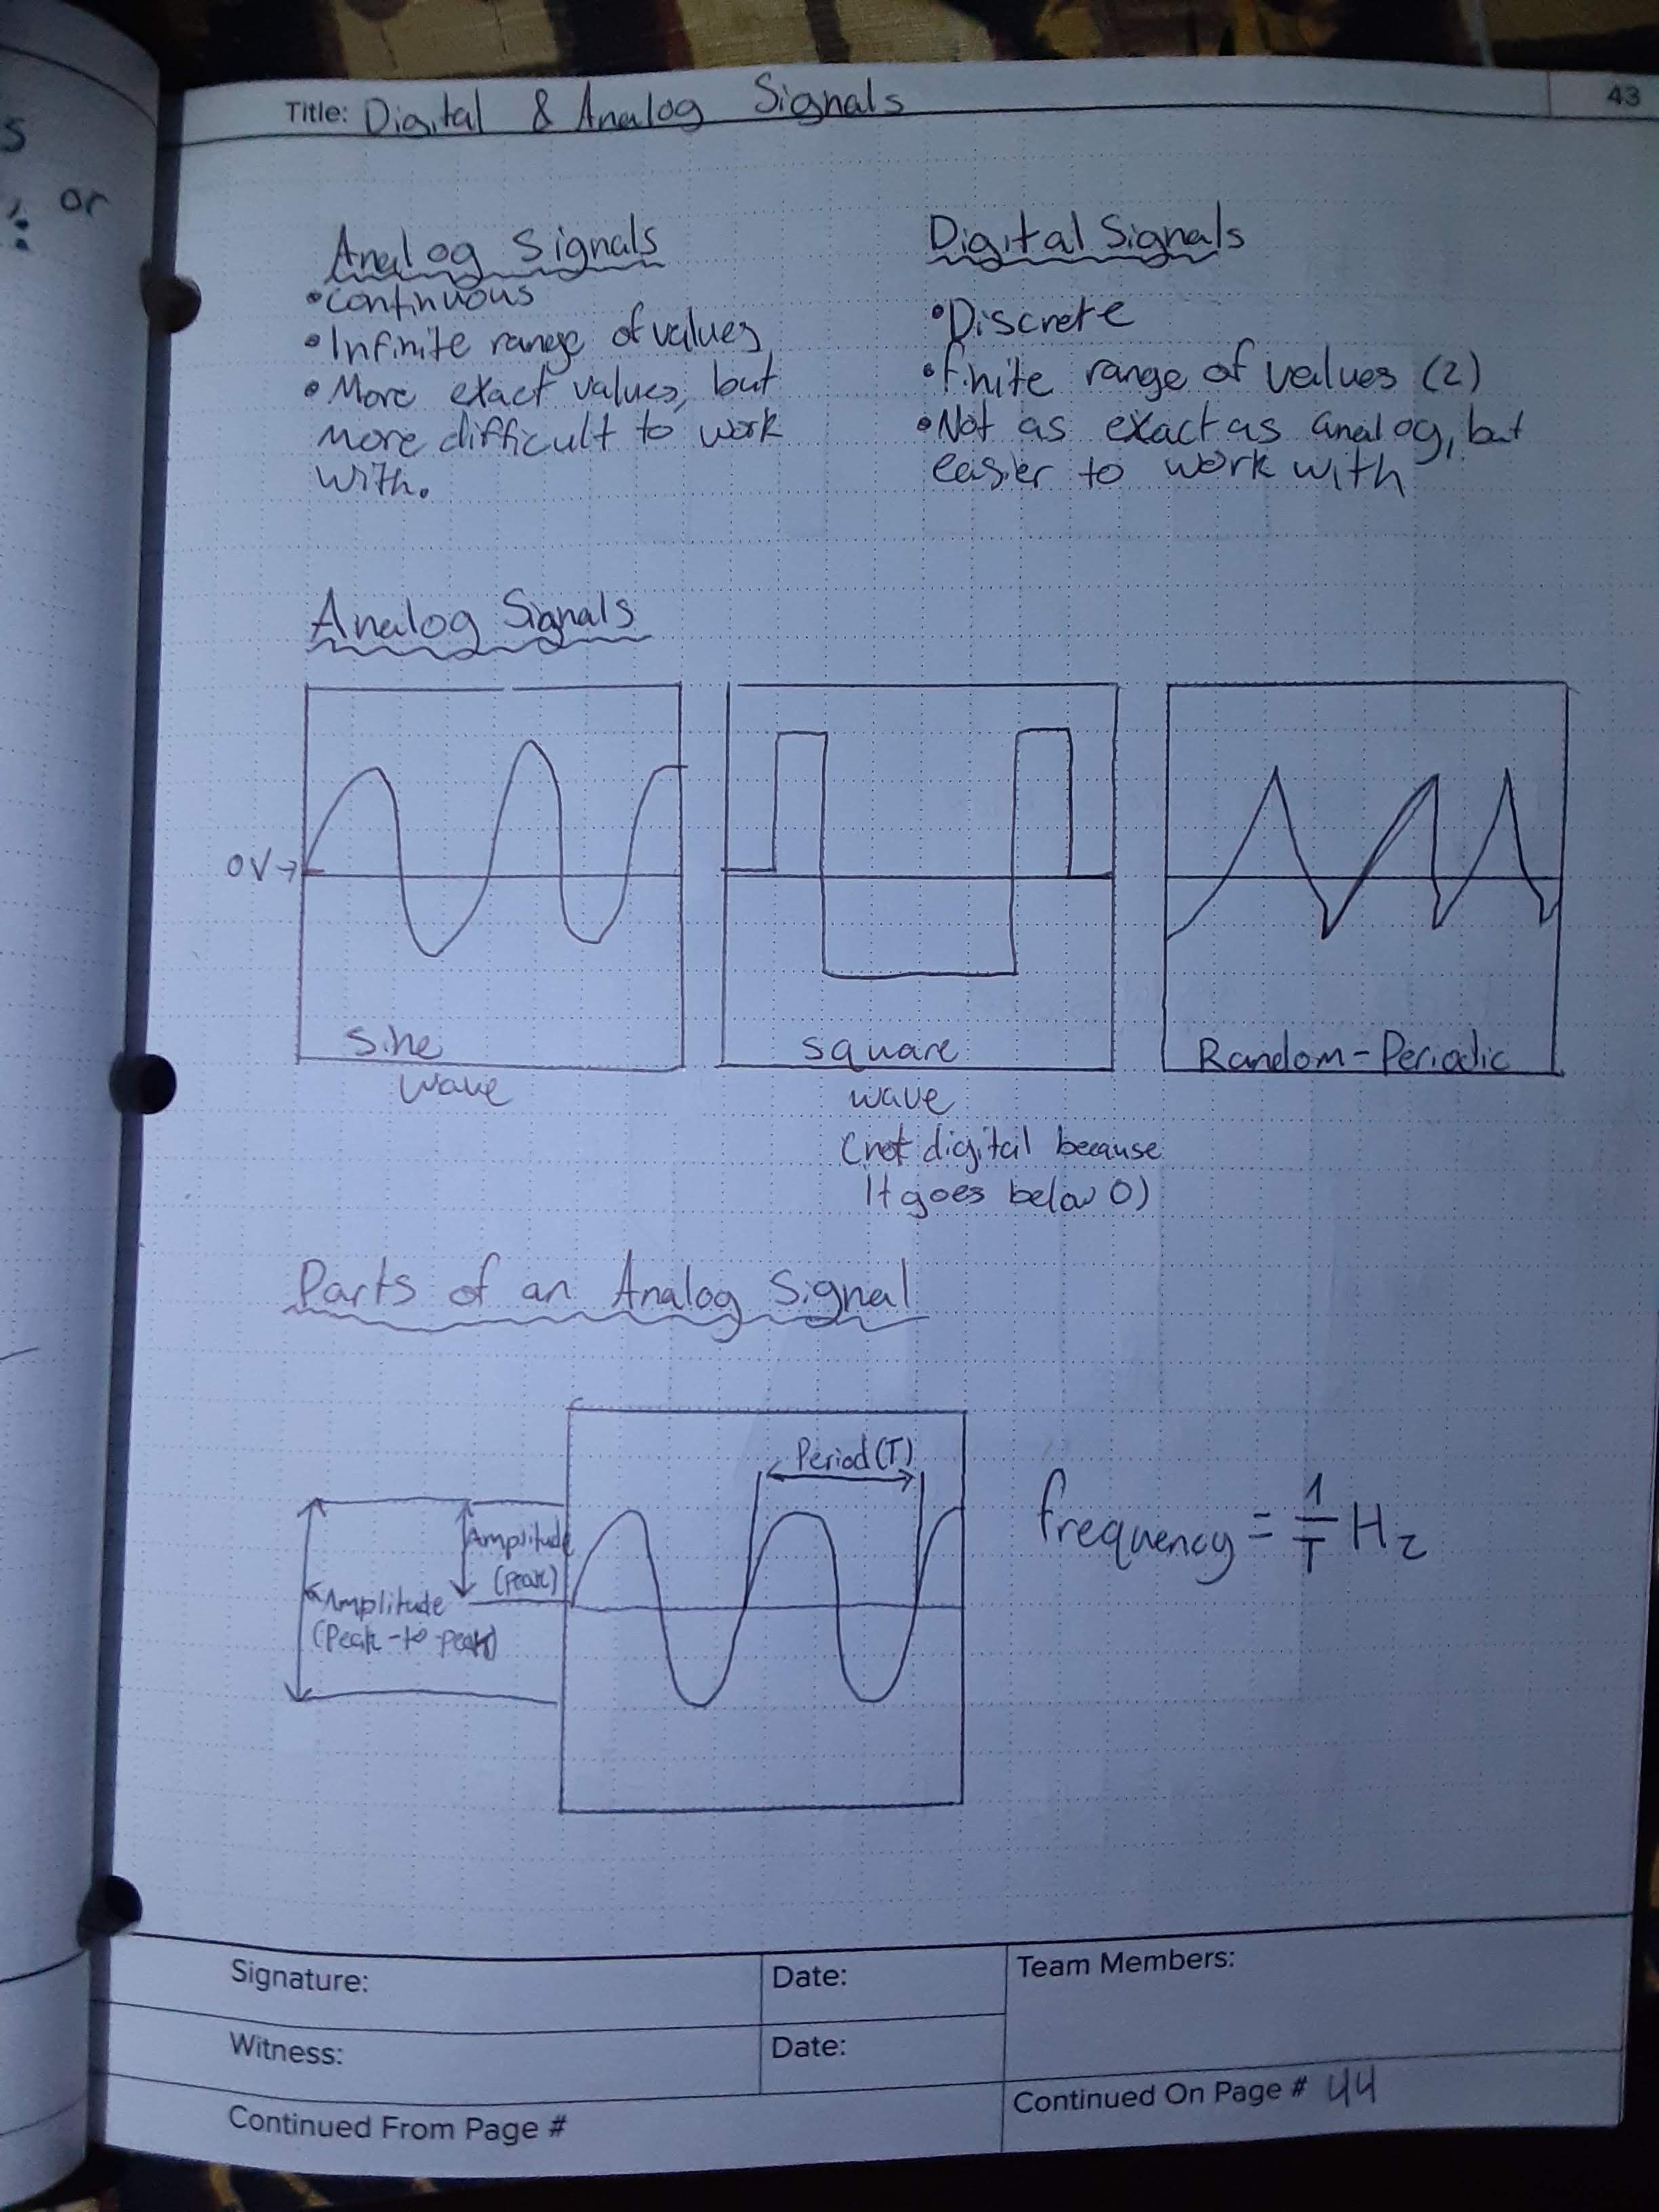 s
or
Title: Digital & Analog Signals
43
Analog Signals
•Continuous
•Infinite range of values
•More exact values, but
more difficult to work
with.
Digital Signals
•Discrete
•finite range of values (2)
•Not as exact as analog, but
easier to work with
Analog Signals
0V→
Sine
wave
square
wave
(not digital because
It goes below 0)
Random-Periodic
Parts of an Analog Signal
Period(T)
Amplitude
(peak)
Amplitude
(Peak-to-peak)
frequency = 1/T Hz
Signature:
Date:
Team Members:
Witness:
Date:
Continued From Page #
Continued On Page # 44